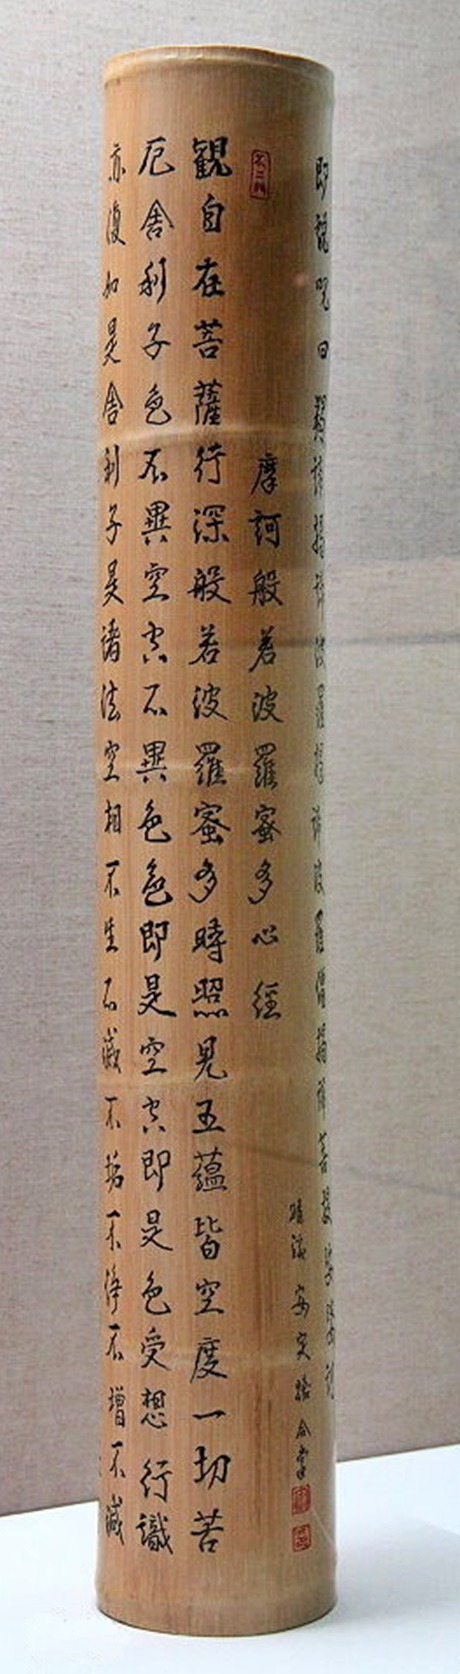 摩訶般若波羅蜜多心経
観自在菩薩行深般若波羅蜜多時照見五蘊皆空度一切苦
厄舎利子色不異空空不異色色即是空空即是色受想行識
亦復如是舎利子是諸法空相不生不滅不垢不浄不増不減
即説呪曰羯諦羯諦波羅羯諦波羅僧羯諦菩提娑婆訶